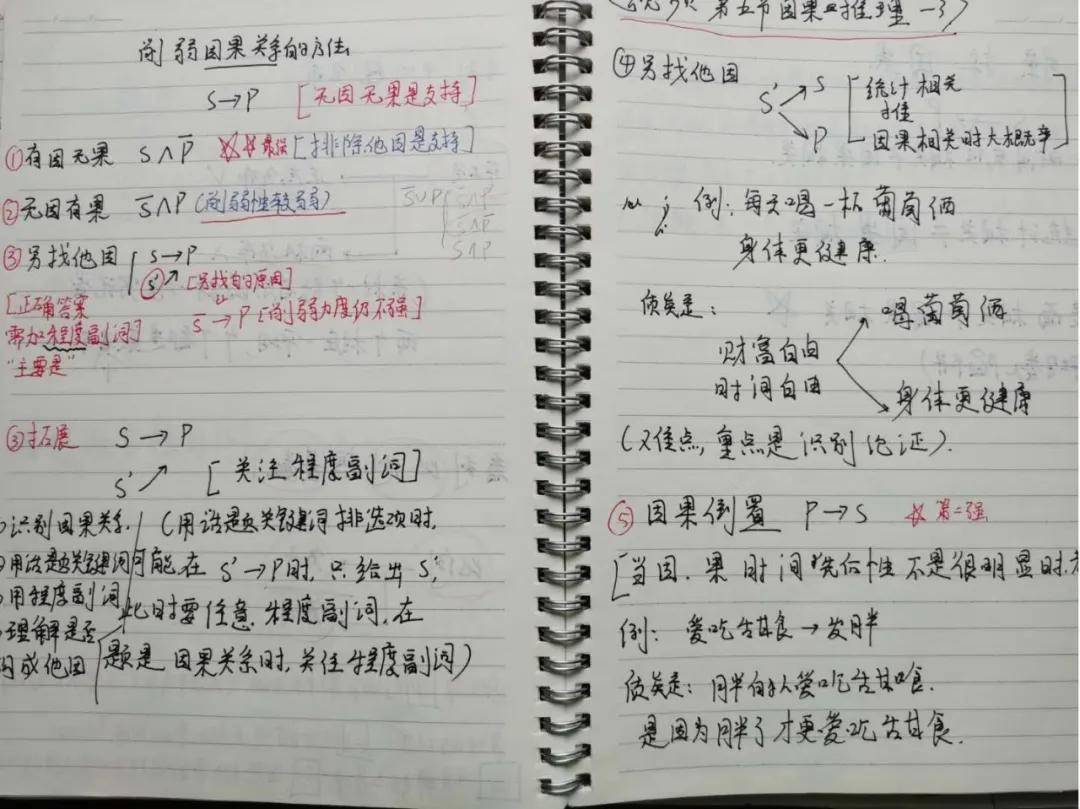 削弱因果关系的方法
S→P [无因无果是支持]
①有因无果 S∧P̅ ☆☆最强[排除他因是支持]
②无因有果 S̅∧P (削弱性较弱)
③另找他因 S→P
S' ↗ [另找自的原因]
[正确答案 S̅→P [削弱力度仍不强]
需加程度副词]
"主要是"
③拓展 S→P
S' ↗ [关注程度副词]
识别因果关系. (用话题关键词排选项时.
用话题关键词 可能在 S'→P时, 只给出 S',
用程度副词 此时要任意 程度副词, 在
理解是否 题是 因果关系时, 关注程度副词)
构成他因
第五节因果推理一3)
④另找他因 S' ↗ S [统计相关
↘ P 因果相关时大概率]
例: 每天喝一杯葡萄酒
身体更健康.
质疑是: 喝葡萄酒
财富自由
时间自由
身体更健康
(又佳点, 重点是识别论证).
⑤ 因果倒置 P→S ☆第二强
[当因. 果时间先后性不是很明显时
例: 爱吃甜食→发胖
质疑是: 胖的人爱吃甜食.
是因为胖了才更爱吃甜食.